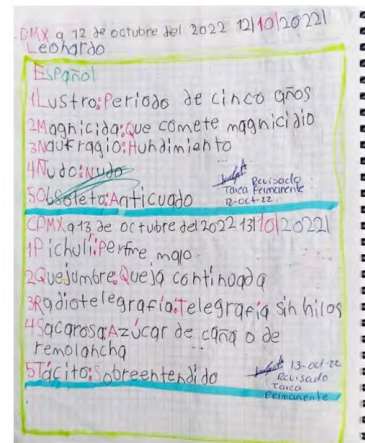 DMX a 12 de octubre del 2022 12/10/2022/
Leonardo
Español
1Lustro:Periodo de cinco años
2Magnicida:Que comete magnicidio
3Naufragio:Hundimiento
4Ñudo:Nudo
5Obsoleta:Anticuado
Revisado
Tarea Permanente
12-oct-22
CDMX a 13 de octubre del 2022 13/10/2022/
1Pichuli:Perfre majo
2Quejumbre:Queja continuada
3Radiotelegrafía:Telegrafía sin hilos
4Sacarosa:Azúcar de caña o de
remolancha
5Tácito:Sobreentendido
13-oct-22
Revisado
Tarea
Permanente